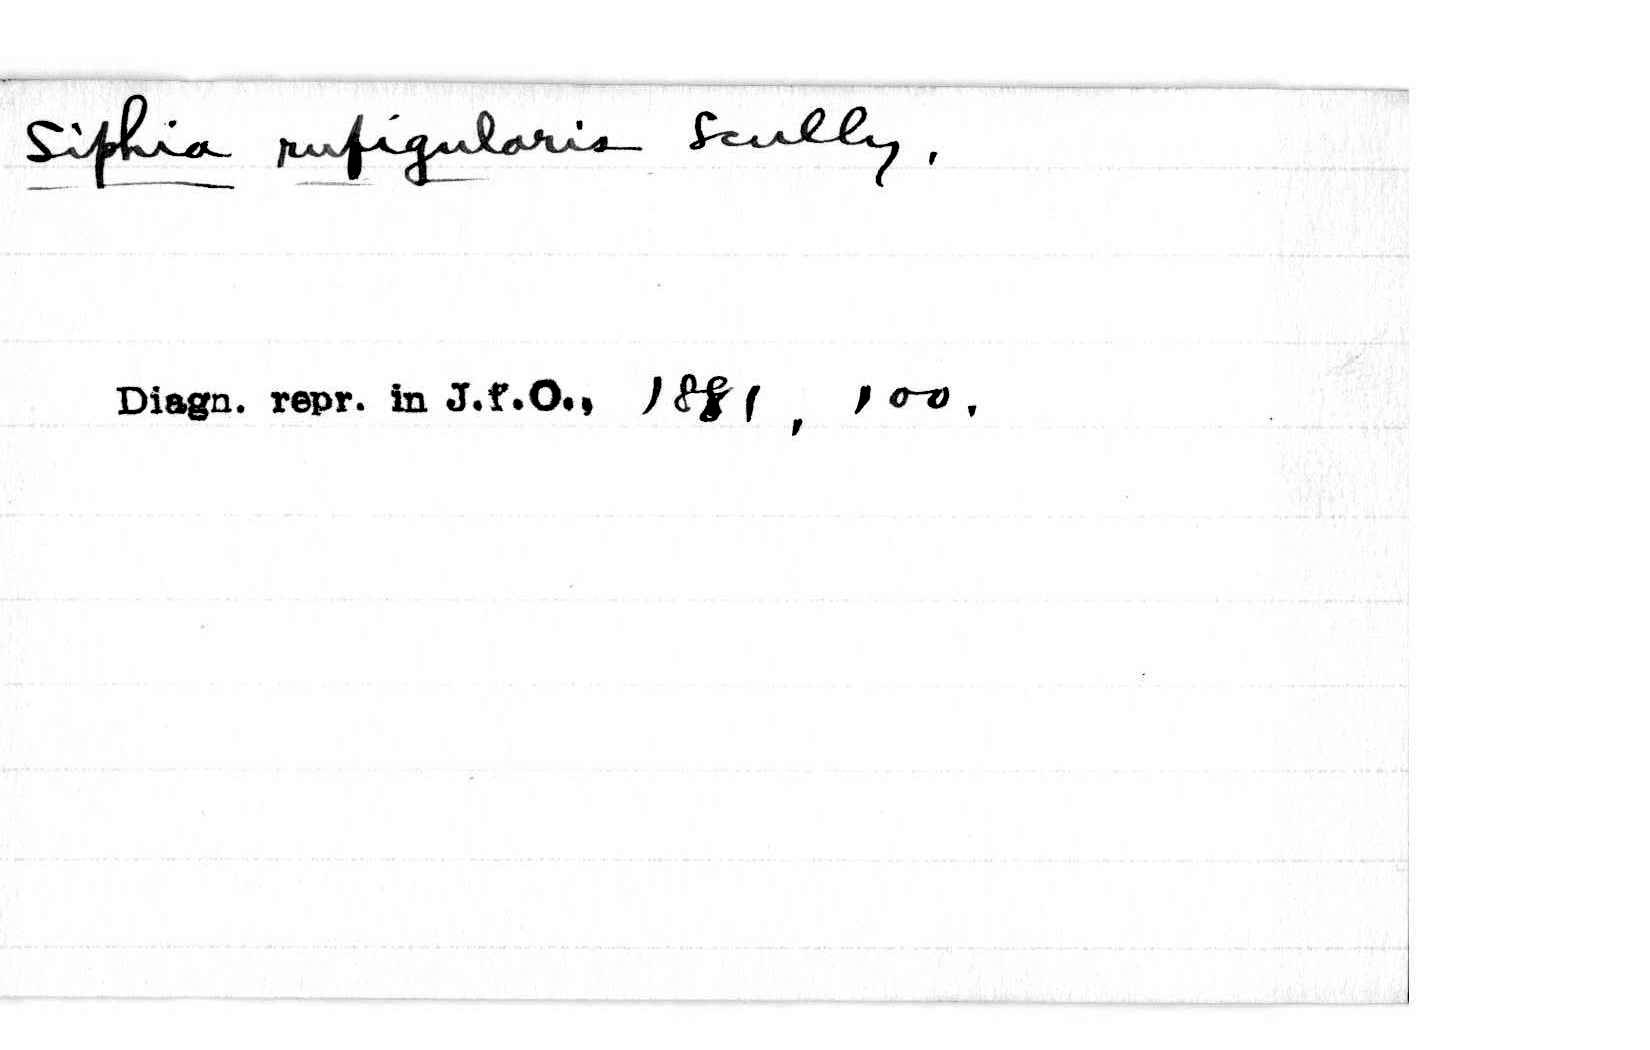 Siphia rufigularis Scully,
Diagn. repr. in J.f.O., 1881, 100.